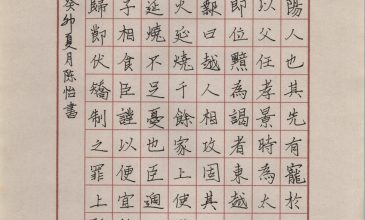 陽人也其先有寵於
以父任孝景時為太
即位黯為謁者東越
報曰越人相攻固其
火延燒千餘家上使
延燒不足憂也臣過
子相食臣謹以便宜
歸節伏矯制之罪上
癸卯夏月陳怡書